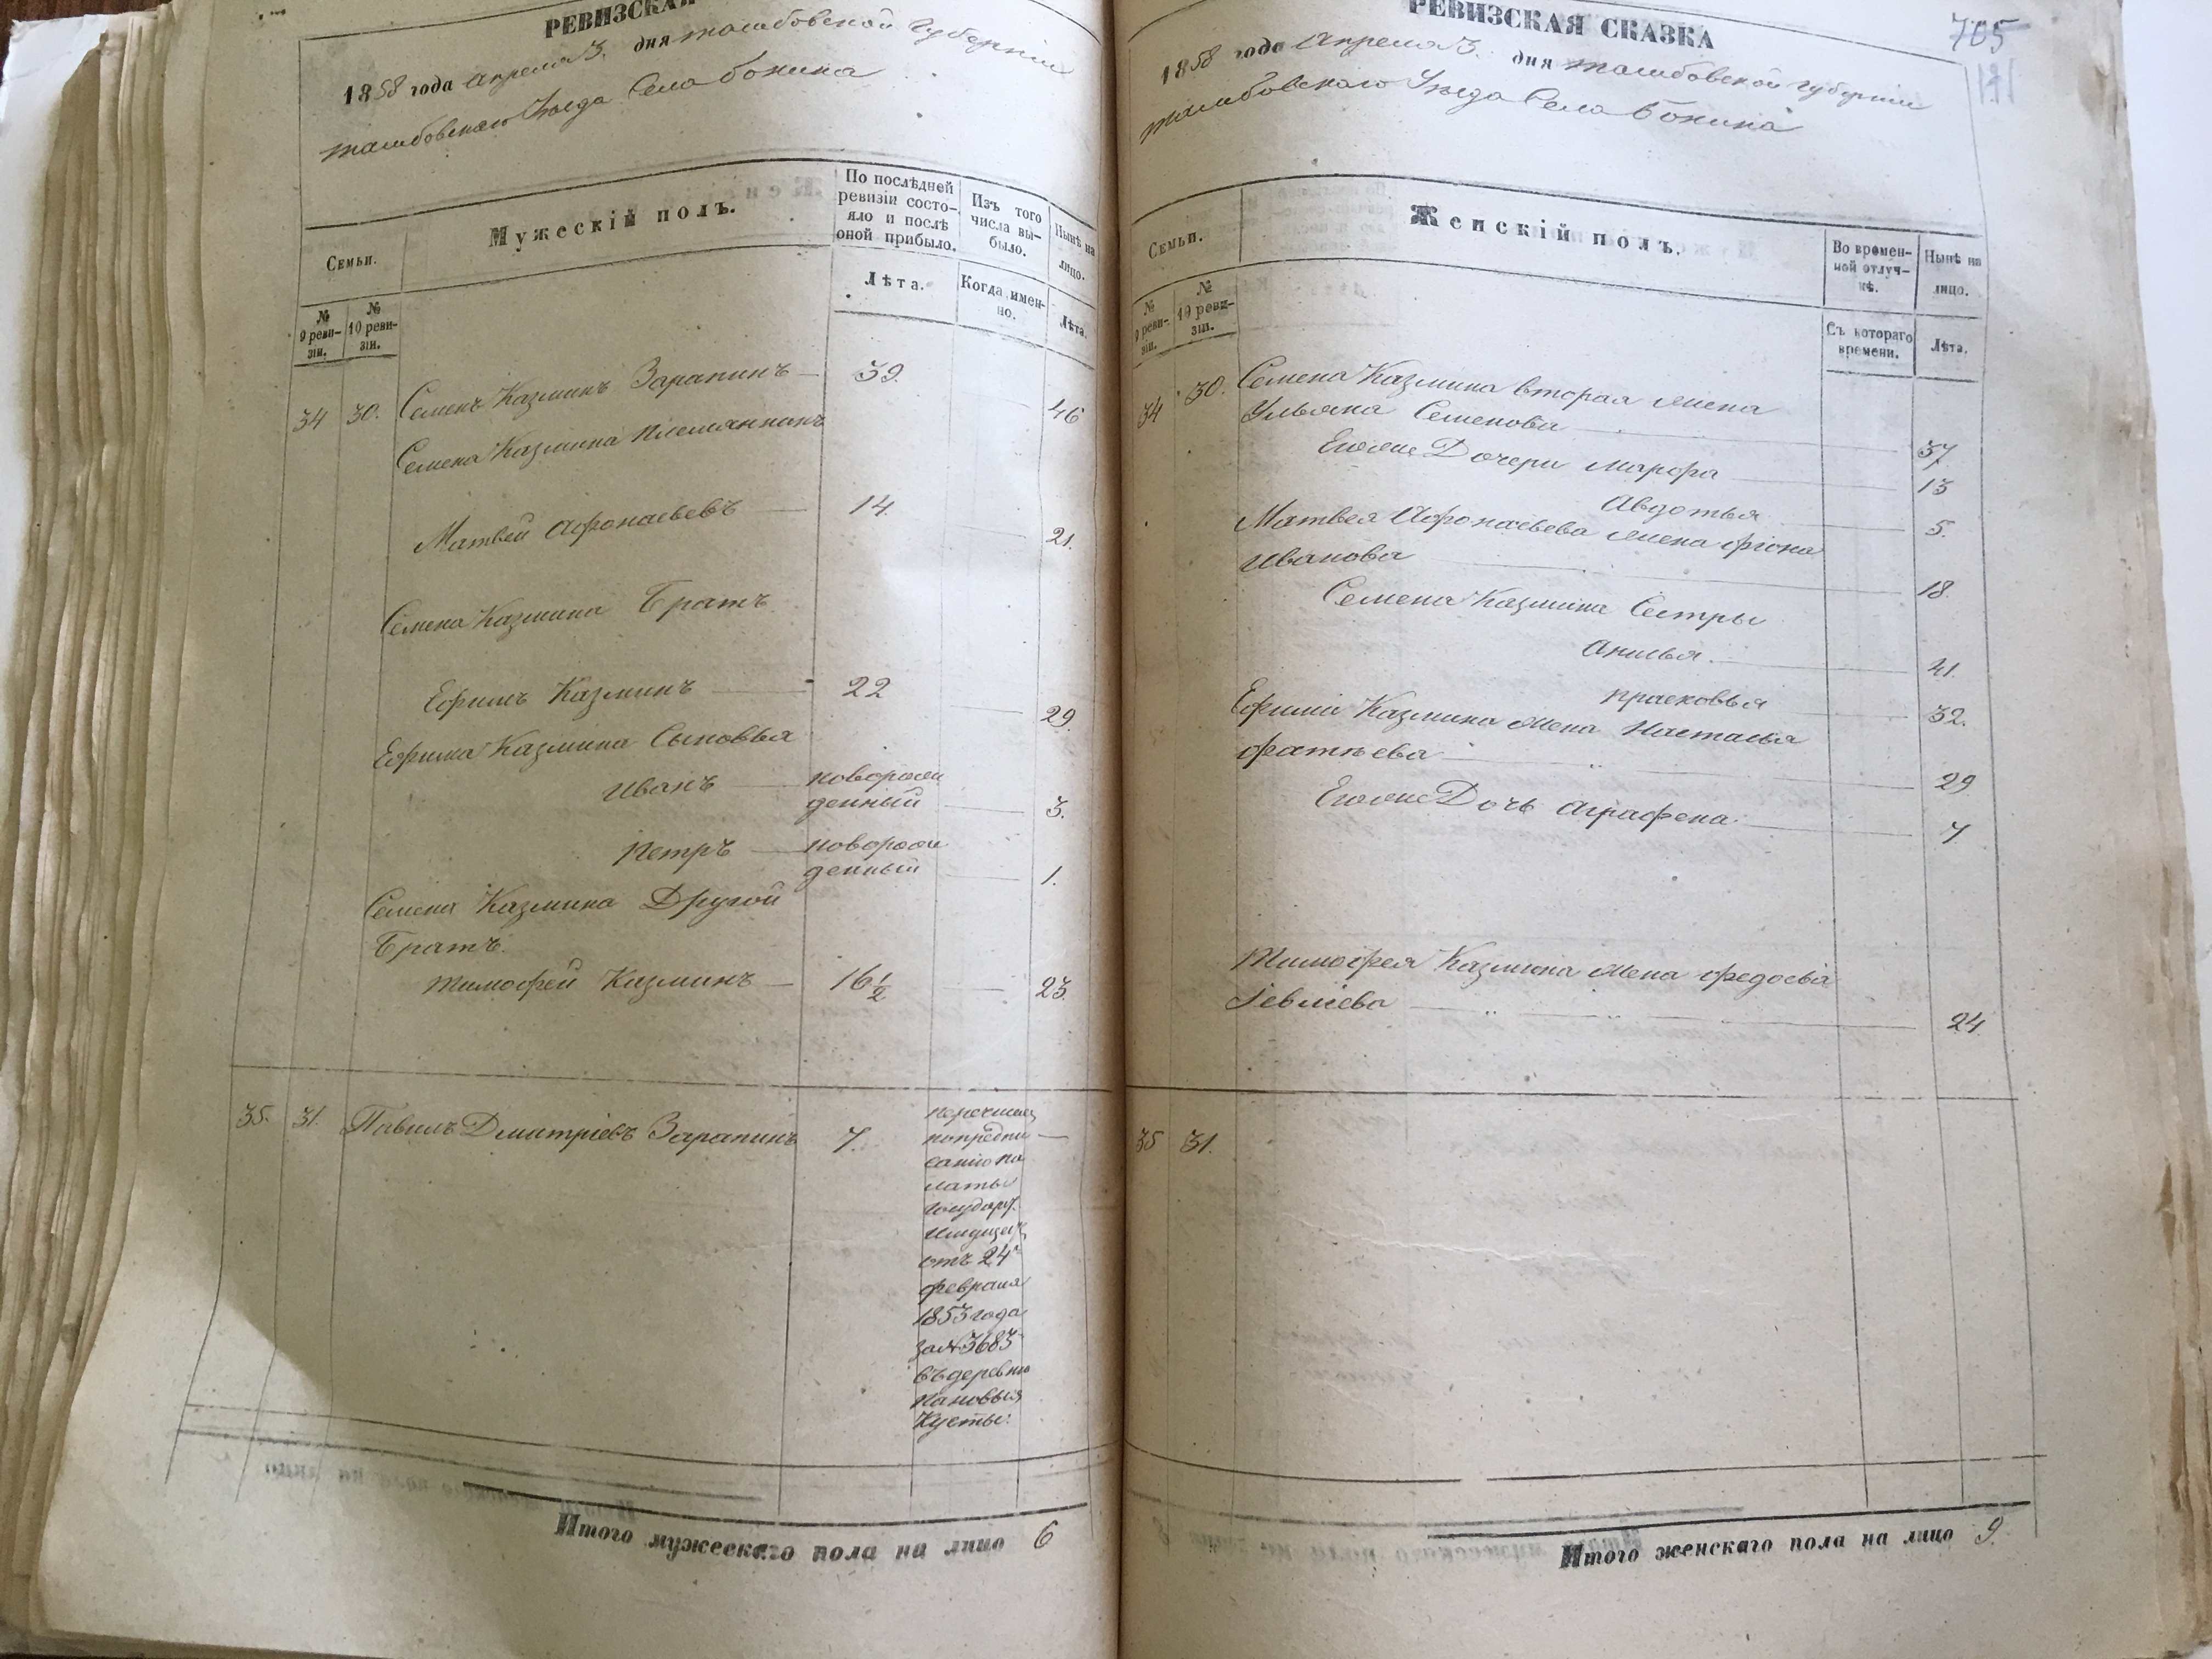 РЕВИЗСКАЯ
1858 года апреля 3. дня тамбовской губернии
тамбовскаго Уезда Села Бокина
Семьи.
Мужескій полъ.
По послѣдней ревизіи состояло и послѣ оной прибыло.
Изъ того числа выбыло.
Нынѣ на лицо.
№ 9 ревизіи.
№ 10 ревизіи.
Лѣта.
Когда именно.
Лѣта.
34 30. Семенъ Казминъ Зарапинъ — 39. 46
Семена Казмина племянникъ
Матвей Афонасьевъ — 14. 21.
Семена Казмина Братъ
Ефимъ Казминъ — 22 29
Ефима Казмина Сыновья
Иванъ — новорож
денный 3.
Петръ — новорож
денный 1.
Семена Казмина Другой
Братъ.
тимофей Казминъ — 16½ — 23.
35. 31. Павилъ Дмитріевъ Зарапинъ 7. —
перечислен
попредпи
санію па
латы
государст.
имуществ
отъ 24го
февраля
1853 года
за № 3683
въ деревню
пановыя
Кусты.
Итого мужескаго пола на лицо 6
РЕВИЗСКАЯ СКАЗКА
705
191
1858 года апреля 3. дня тамбовской губернии
тамбовскаго Уезда Села Бокина
Семьи.
Женскій полъ.
Во временной отлучкѣ.
Нынѣ на лицо.
№ 9 ревизіи.
№ 10 ревизіи.
Съ котораго времени.
Лѣта.
34 30. Семена Казмина вторая жена
Ульяна Семенова — 37
Егоже Дочери Марфа — 13
Авдотья — 5.
Матвея Афонасьева жена фіона
Иванова — 18.
Семена Казмина Сестры
Анисья. — 41.
прасковья — 32.
Ефима Казмина жена Настасья
фатѣева — 29
Егоже Дочь Аграфена. — 7
Тимофея Казмина жена федосья
— 24.
35 31.
Итого женскаго пола на лицо 9.